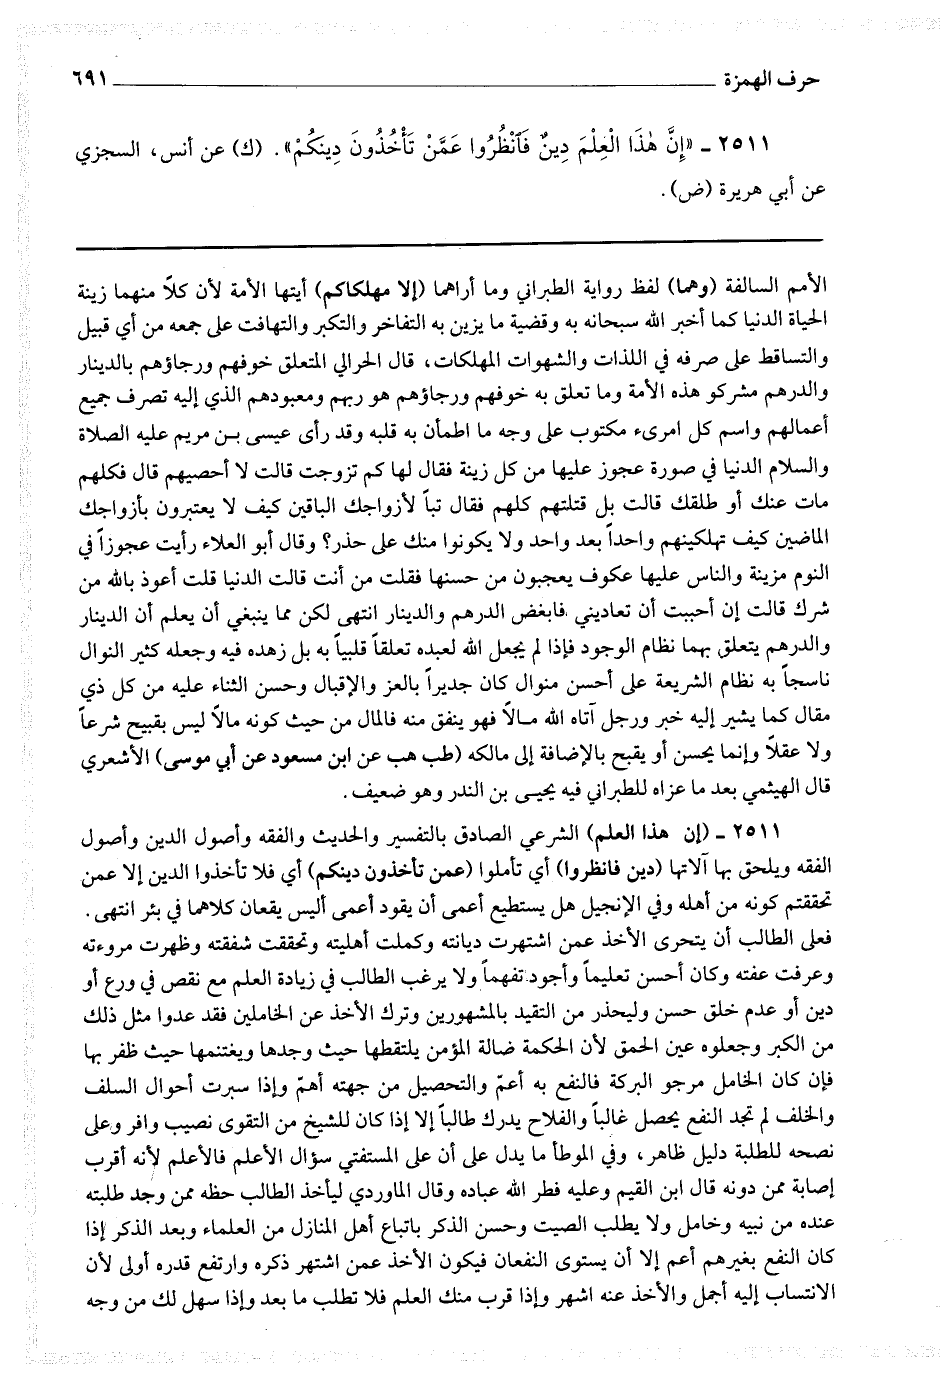 حرف الهمزة ٦٩١
٢٥١١ ـ «إِنَّ هٰذَا الْعِلْمَ دِينٌ فَٱنْظُرُوا عَمَّنْ تَأْخُذُونَ دِينَكُمْ». (ك) عن أنس، السجزي
عن أبي هريرة (ض).
الأمم السالفة (وهما) لفظ رواية الطبراني وما أراهما (إلا مهلكاكم) أيتها الأمة لأن كلاً منهما زينة
الحياة الدنيا كما أخبر الله سبحانه به وقضية ما يزين به التفاخر والتكبر والتهافت على جمعه من أي قبيل
والتساقط على صرفه في اللذات والشهوات المهلكات، قال الحرالي المتعلق خوفهم ورجاؤهم بالدينار
والدرهم مشركو هذه الأمة وما تعلق به خوفهم ورجاؤهم هو ربهم ومعبودهم الذي إليه تصرف جميع
أعمالهم واسم كل امرىء مكتوب على وجه ما اطمأن به قلبه وقد رأى عيسى بـن مريم عليه الصلاة
والسلام الدنيا في صورة عجوز عليها من كل زينة فقال لها كم تزوجت قالت لا أحصيهم قال فكلهم
مات عنك أو طلقك قالت بل قتلتهم كلهم فقال تباً لأزواجك الباقين كيف لا يعتبرون بأزواجك
الماضين كيف تهلكينهم واحداً بعد واحد ولا يكونوا منك على حذر؟ وقال أبو العلاء رأيت عجوزاً في
النوم مزينة والناس عليها عكوف يعجبون من حسنها فقلت من أنت قالت الدنيا قلت أعوذ بالله من
شرك قالت إن أحببت أن تعاديني فابغض الدرهم والدينار انتهى لكن مما ينبغي أن يعلم أن الدينار
والدرهم يتعلق بهما نظام الوجود فإذا لم يجعل الله لعبده تعلقاً قلبياً به بل زهده فيه وجعله كثير النوال
ناسجاً به نظام الشريعة على أحسن منوال كان جديراً بالعز والإقبال وحسن الثناء عليه من كل ذي
مقال كما يشير إليه خبر ورجل آتاه الله مـالاً فهو ينفق منه فالمال من حيث كونه مالاً ليس بقبيح شرعاً
ولا عقلاً وإنما يحسن أو يقبح بالإضافة إلى مالكه (طب هب عن ابن مسعود عن أبي موسى) الأشعري
قال الهيثمي بعد ما عزاه للطبراني فيه يحيـى بن الندر وهو ضعيف.
٢٥١١ ـ (إن هذا العلم) الشرعي الصادق بالتفسير والحديث والفقه وأصول الدين وأصول
الفقه ويلحق بها آلاتها (دين فانظروا) أي تأملوا (عمن تأخذون دينكم) أي فلا تأخذوا الدين إلا عمن
تحققتم كونه من أهله وفي الإنجيل هل يستطيع أعمى أن يقود أعمى أليس يقعان كلاهما في بئر انتهى.
فعلى الطالب أن يتحرى الأخذ عمن اشتهرت ديانته وكملت أهليته وتحققت شفقته وظهرت مروءته
وعرفت عفته وكان أحسن تعليماً وأجود تفهماً ولا يرغب الطالب في زيادة العلم مع نقص في ورع أو
دين أو عدم خلق حسن وليحذر من التقيد بالمشهورين وترك الأخذ عن الخاملين فقد عدوا مثل ذلك
من الكبر وجعلوه عين الحمق لأن الحكمة ضالة المؤمن يلتقطها حيث وجدها ويغتنمها حيث ظفر بها
فإن كان الخامل مرجو البركة فالنفع به أعمّ والتحصيل من جهته أهمّ وإذا سبرت أحوال السلف
والخلف لم تجد النفع يحصل غالباً والفلاح يدرك طالباً إلا إذا كان للشيخ من التقوى نصيب وافر وعلى
نصحه للطلبة دليل ظاهر، وفي الموطأ ما يدل على أن على المستفتي سؤال الأعلم فالأعلم لأنه أقرب
إصابة ممن دونه قال ابن القيم وعليه فطر الله عباده وقال الماوردي ليأخذ الطالب حظه ممن وجد طلبته
عنده من نبيه وخامل ولا يطلب الصيت وحسن الذكر باتباع أهل المنازل من العلماء وبعد الذكر إذا
كان النفع بغيرهم أعم إلا أن يستوى النفعان فيكون الأخذ عمن اشتهر ذكره وارتفع قدره أولى لأن
الانتساب إليه أجمل والأخذ عنه اشهر وإذا قرب منك العلم فلا تطلب ما بعد وإذا سهل لك من وجه